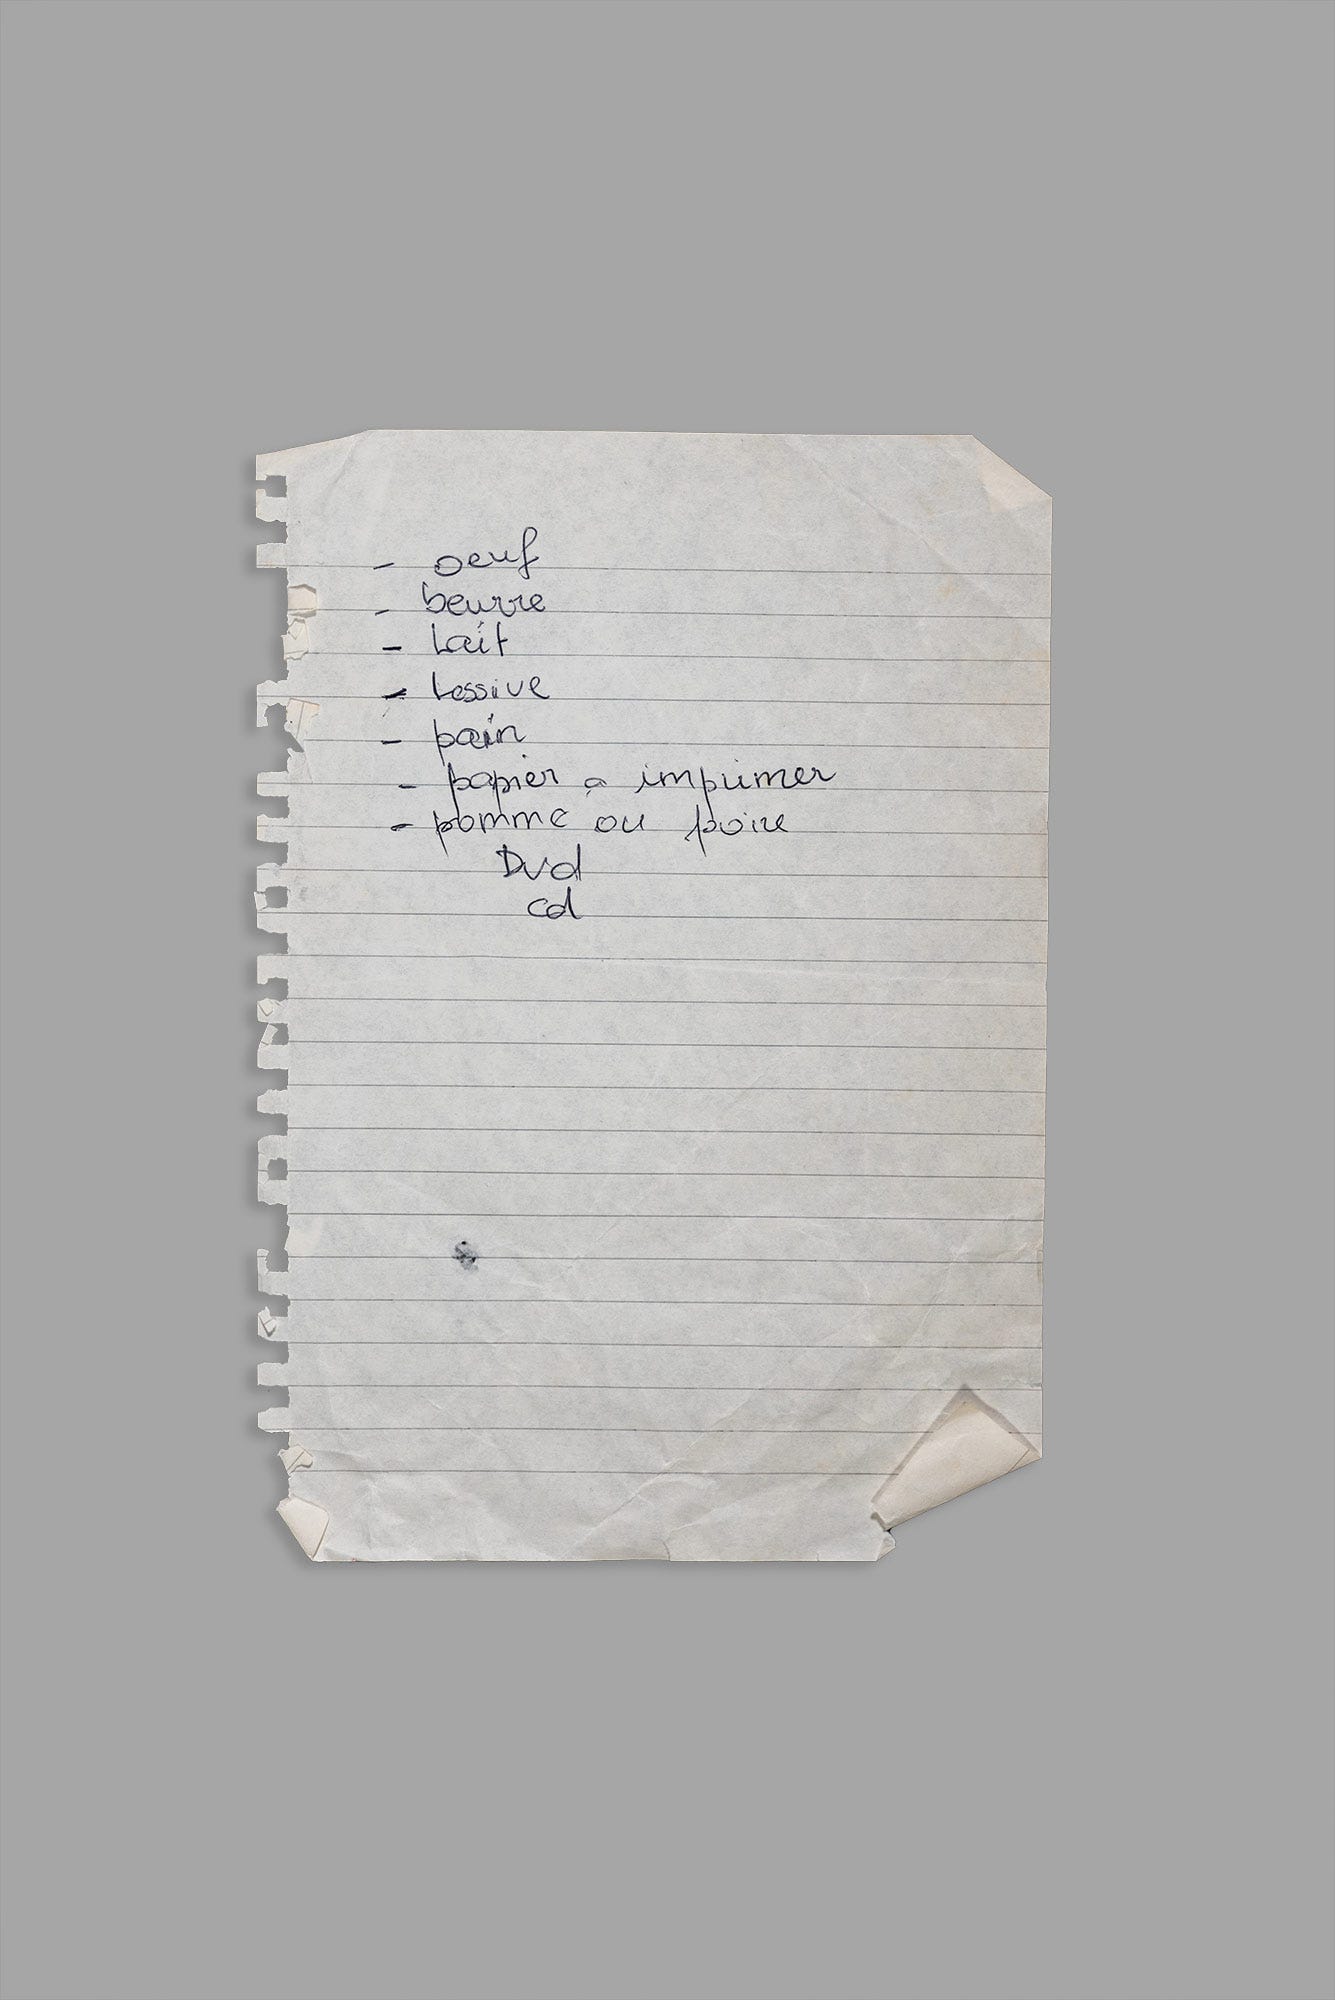 - oeuf
- beurre
- Lait
- Lessive
- pain
- papier a imprimer
- pomme ou poire
Dvd
cd